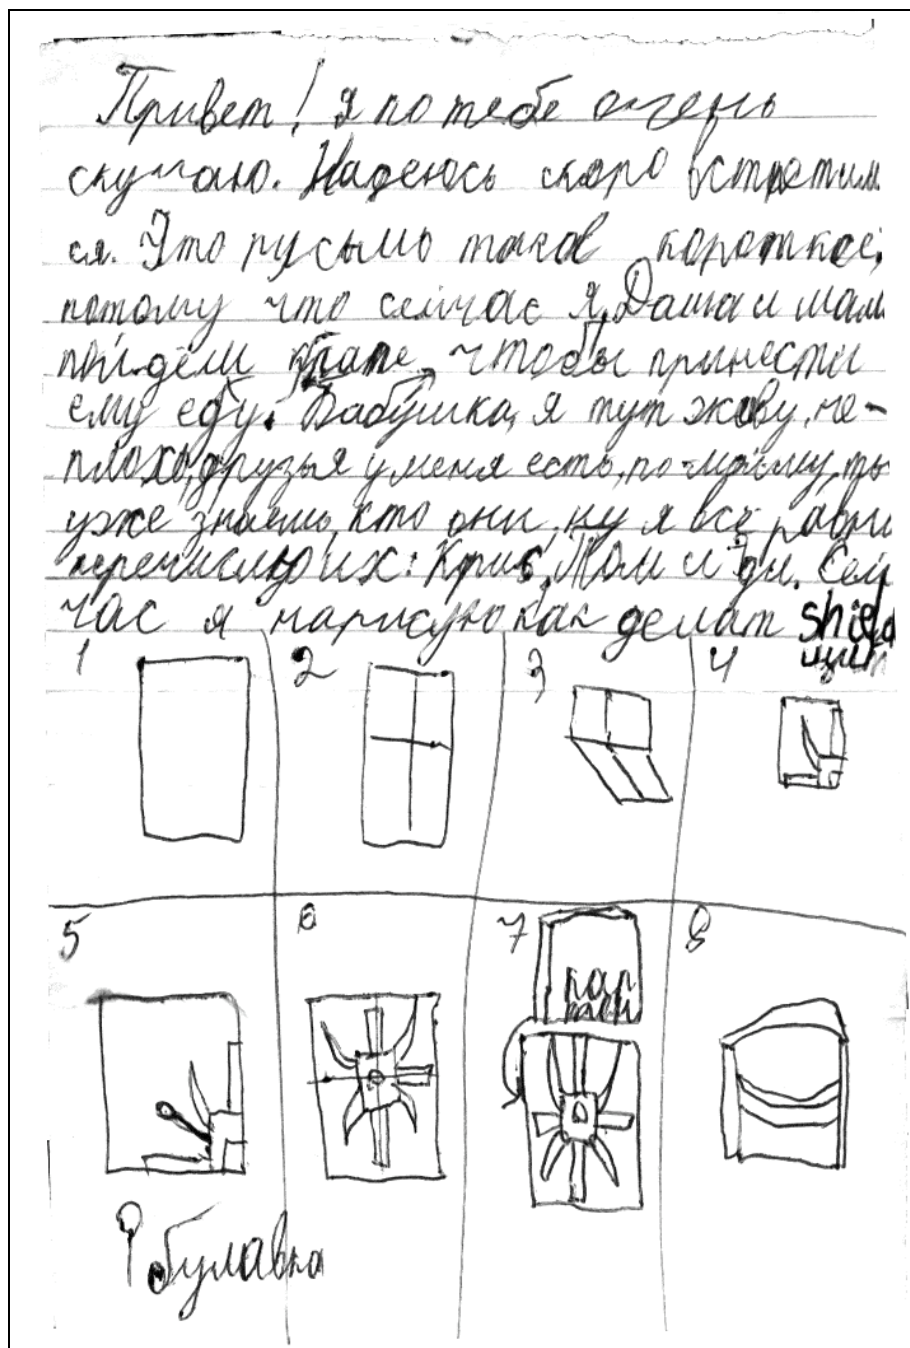 Привет! Я по тебе очень
скучаю. Надеюсь скоро встретим
ся. Это письмо такое короткое,
потому что сейчас я, Даша и мам
пойдём к папе, чтобы принести
ему еду. Бабушка, я тут живу не-
плохо, друзья у меня есть, по-моему, ты
уже знаешь кто они, ну я всё равно
перечислю их: Крис, Том и Эди. Сей
час я нарисую как делат shield
щит
1 2 3 4
5 6 7 8
кар
ман
булавка